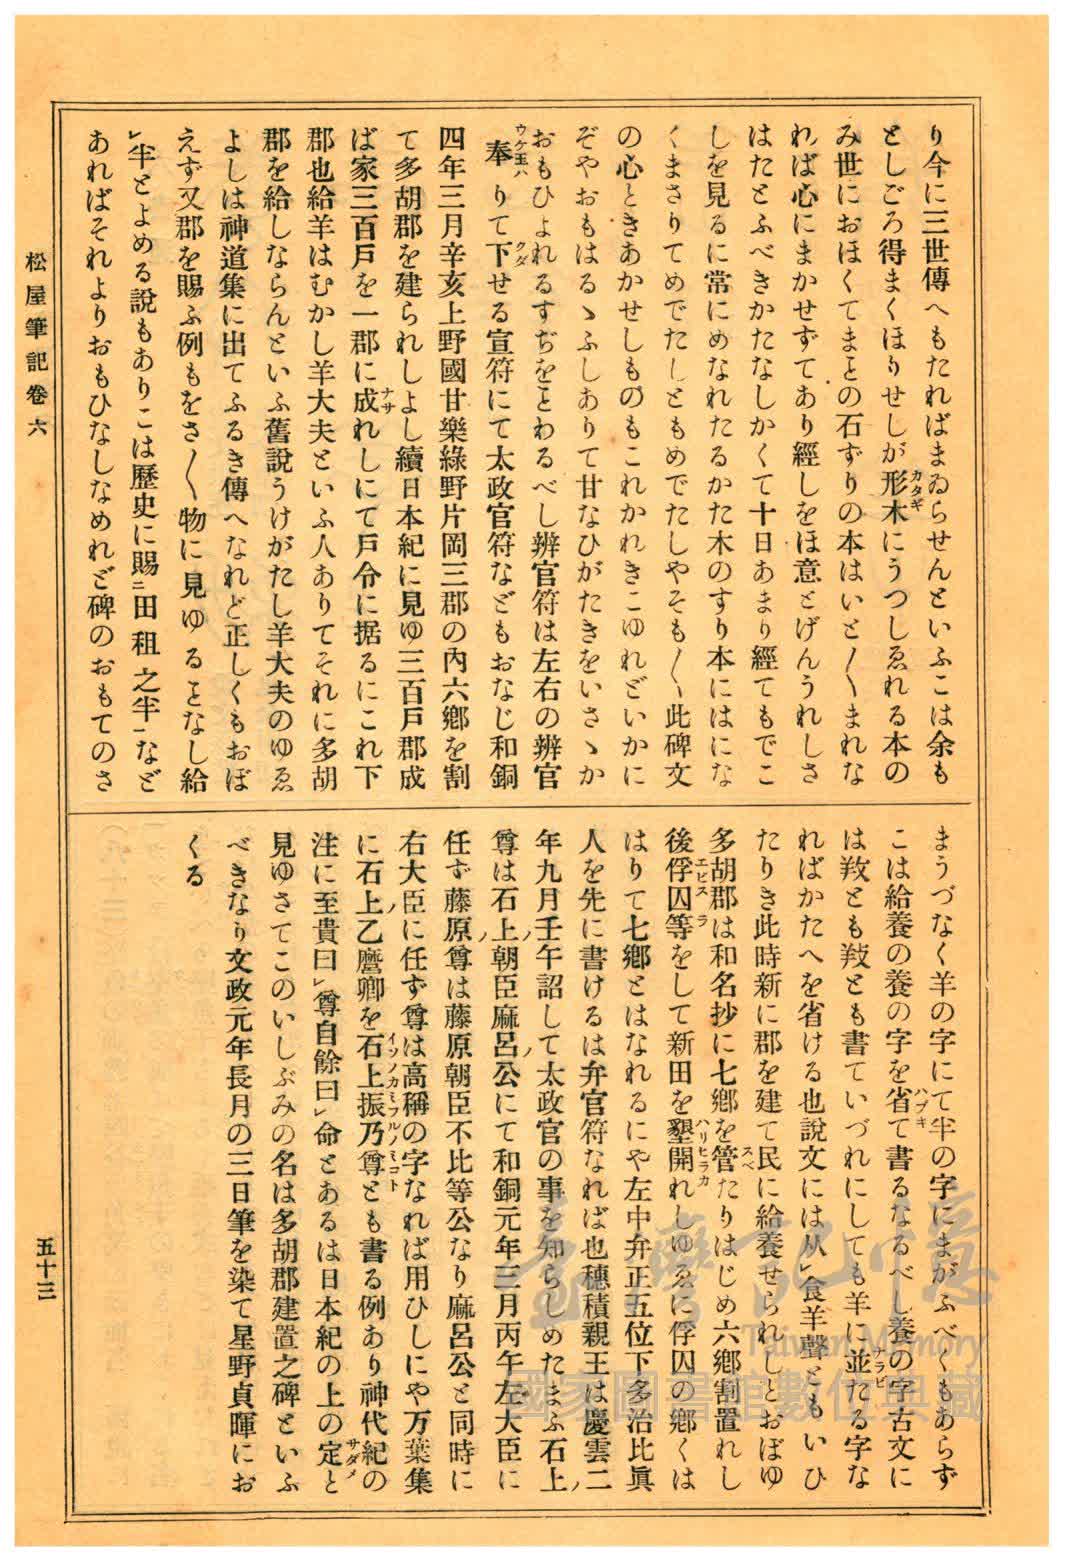 り今に三世傳へもたればまゐらせんといふこは余も
としごろ得まくほりせしが形木にうつしゑれる本の
カタギ
み世におほくてまとの石ずりの本はいと〳〵まれな
れば心にまかせずてあり經しをほ意とげんうれしさ
はたとふべきかたなしかくて十日あまり經てもてこ
しを見るに常にめなれたるかた木のすり本にはにな
くまさりてめでたしともめでたしやそも〳〵此碑文
の心ときあかせしものもこれかれきこゆれどいかに
ぞやおもはるゝふしありて甘なひがたきをいさゝか
おもひよれるすぢをことわるべし辨官符は左右の辨官
奉りて下せる宣符にて太政官符などもおなじ和銅
ウケ玉ハ
クダ
四年三月辛亥上野國甘樂綠野片岡三郡の內六鄕を割
て多胡郡を建られしよし續日本紀に見ゆ三百戸郡成
ば家三百戸を一郡に成れしにて戸令に据るにこれ下
ナサ
郡也給羊はむかし羊大夫といふ人ありてそれに多胡
郡を給しならんといふ舊說うけがたし羊大夫のゆゑ
よしは神道集に出てふるき傳へなれど正しくもおぼ
えず又郡を賜ふ例もをさ〳〵物に見ゆることなし給
㆑半とよめる說もありこは歷史に賜㆓田租之半㆒など
あればそれよりおもひなしなめれど碑のおもてのさ
まうづなく羊の字にて半の字にまがふべくもあらず
こは給養の養の字を省て書るなるべし養の字古文に
ハブキ
は羖とも𢼝とも書ていづれにしても羊に並たる字な
ナラビ
ればかたへを省ける也說文には从㆑食羊聲ともいひ
たりき此時新に郡を建て民に給養せられしとおぼゆ
多胡郡は和名抄に七鄕を管たりはじめ六鄕割置れし
スベ
後俘囚等をして新田を墾開れしゆゑに俘囚の鄕くは
エビスラ
ハリヒラカ
はりて七鄕とはなれるにや左中弁正五位下多治比眞
人を先に書けるは弁官符なれば也穗積親王は慶雲二
年九月壬午詔して太政官の事を知らしめたまふ石上
ノ
尊は石上朝臣麻呂公にて和銅元年三月丙午左大臣に
ノ
ノ
任ず藤原尊は藤原朝臣不比等公なり麻呂公と同時に
右大臣に任ず尊は高稱の字なれば用ひしにや万葉集
に石上乙麿卿を石上振乃尊とも書る例あり神代紀の
ノ
イソノカミフルノミコト
注に至貴曰㆑尊自餘曰㆑命とあるは日本紀の上の定と
サダメ
見ゆさてこのいしぶみの名は多胡郡建置之碑といふ
べきなり文政元年長月の三日筆を染て星野貞暉にお
くる
松屋筆記卷六
五十三
臺灣記憶
Taiwan Memory
國家圖書館數位典藏